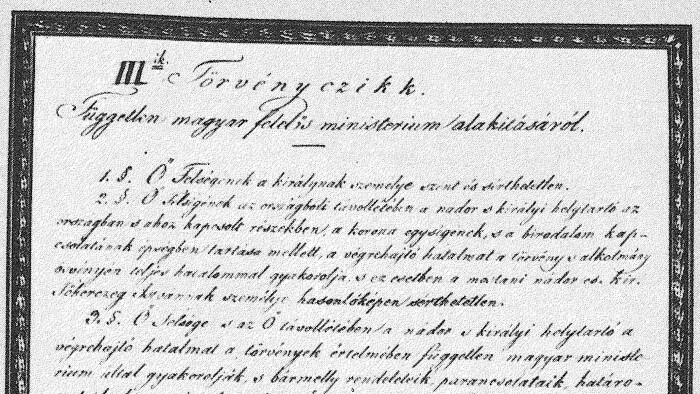 IIIik Törvényczikk.
Független magyar felelős ministerium alakításáról.
1. §. Ő Felségének a királynak személye szent és sérthetetlen.
2. §. Ő Felségének az országbóli távollétében a nádor s királyi helytartó az
országban s ahoz kapcsolt részekben, a korona egységének, s a birodalom kap-
csolatának épségben tartása mellett, a végrehajtó hatalmat a törvény s alkotmány
ösvényén teljes hatalommal gyakorolja, s ez esetben a mostani nádor cs. kir.
főherczeg Istvánnak személye hasonlóképen sérthetetlen.
3. §. Ő Felsége s az Ő távollétében a nádor s királyi helytartó a
végrehajtó hatalmat a törvények értelmében független magyar ministe-
rium által gyakorolják, s bármelly rendeleteik, parancsolataik, határo-